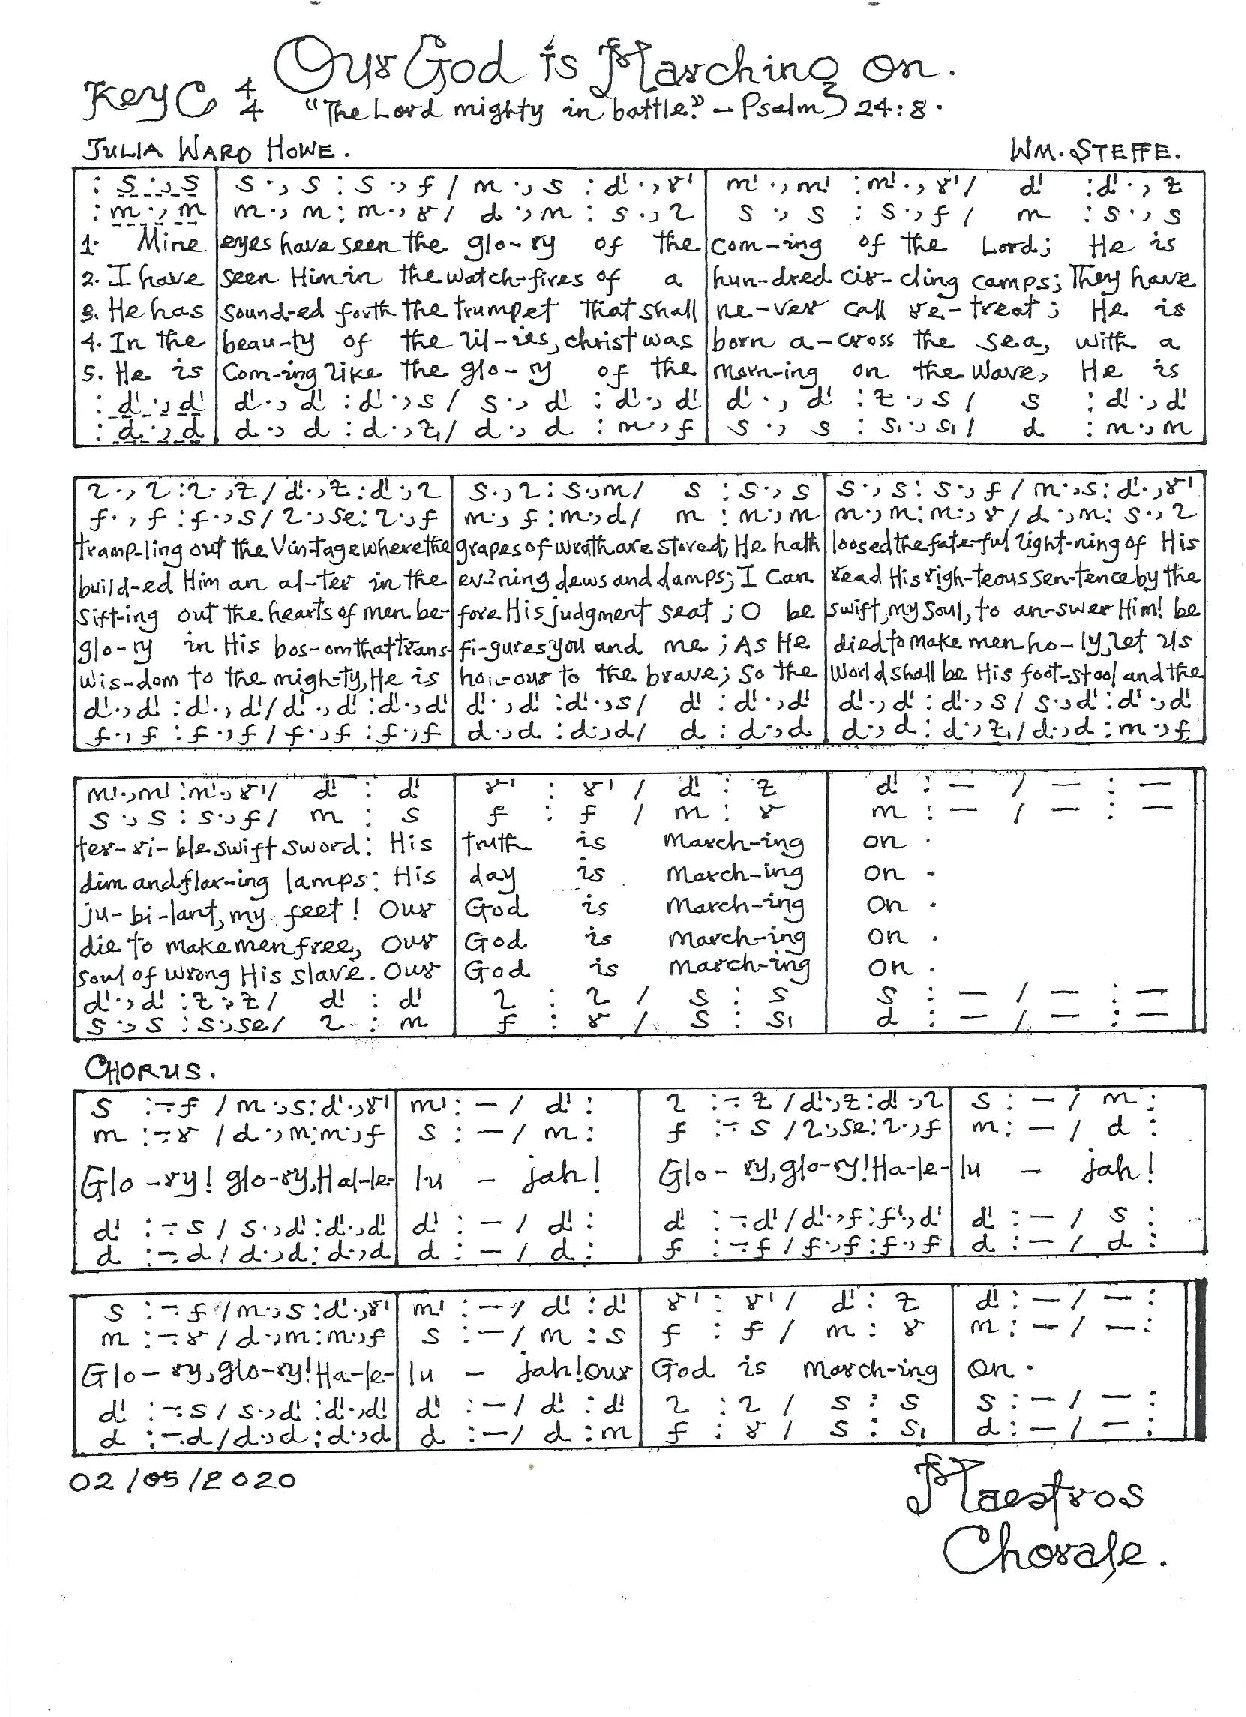 Our God is Marching on.
Key C 4/4 "The Lord mighty in battle." - Psalm 24:8.
JULIA WARD HOWE. WM. STEFFE.
: s ., s | s ., s : s ., f / m ., s : d' ., r' | m' ., m' : m' ., r' / d' : d' ., t
: m ., m | m ., m : m ., r / d ., m : s ., l | s ., s : s ., f / m : s ., s
1. Mine | eyes have seen the glo-ry of the | com-ing of the Lord; He is
2. I have | seen Him in the watch-fires of a | hun-dred cir-cling camps; They have
3. He has | sound-ed forth the trumpet that shall | ne-ver call re-treat; He is
4. In the | beau-ty of the lil-ies, christ was | born a-cross the sea, with a
5. He is | com-ing like the glo-ry of the | morn-ing on the wave, He is
: d' ., d' | d' ., d' : d' ., s / s ., d' : d' ., d' | d' ., d' : t ., s / s : d' ., d'
: d ., d | d ., d : d ., t, / d ., d : m ., f | s ., s : s, ., s, / d : m ., m
l ., l : l ., t / d' ., t : d' ., l | s ., l : s ., m / s : s ., s | s ., s : s ., f / m ., s : d' ., r'
f ., f : f ., s / l ., se : l ., f | m ., f : m ., d / m : m ., m | m ., m : m ., r / d ., m : s ., l
tramp-ling out the Vin-tage where the | grapes of wrath are stored; He hath | loosed the fate-ful light-ning of His
build-ed Him an al-ter in the | eve-ning dews and damps; I can | read His righ-teous sen-tence by the
sift-ing out the hearts of men be- | fore His judgment seat; O be | swift, my soul, to an-swer Him! be
glo-ry in His bos-om that trans- | fi-gures you and me; As He | died to make men ho-ly, let us
wis-dom to the migh-ty, He is | hon-our to the brave; So the | world shall be His foot-stool and the
d' ., d' : d' ., d' / d' ., d' : d' ., d' | d' ., d' : d' ., s / d' : d' ., d' | d' ., d' : d' ., s / s ., d' : d' ., d'
f ., f : f ., f / f ., f : f ., f | d ., d : d ., d / d : d ., d | d ., d : d ., t, / d ., d : m ., f
m' ., m' : m' ., r' / d' : d' | r' : r' / d' : t | d' : — / — : —
s ., s : s ., f / m : s | f : f / m : r | m : — / — : —
ter-ri-ble swift sword: His | truth is march-ing | on.
dim and flar-ing lamps: His | day is march-ing | on.
ju-bi-lant, my feet! Our | God is march-ing | on.
die to make men free, Our | God is march-ing | on.
soul of wrong His slave. Our | God is march-ing | on.
d' ., d' : t ., t / d' : d' | l : l / s : s | s : — / — : —
s ., s : s ., se / l : m | f : r / s : s, | d : — / — : —
CHORUS.
s : -. f / m ., s : d' ., r' | m' : — / d' : | l : -. t / d' ., t : d' ., l | s : — / m :
m : -. r / d ., m : m ., f | s : — / m : | f : -. s / l ., se : l ., f | m : — / d :
Glo-ry! glo-ry, Hal-le- | lu - jah! | Glo-ry, glo-ry! Ha-le- | lu - jah!
d' : -. s / s ., d' : d' ., d' | d' : — / d' : | d' : -. d' / d' ., f : f ., d' | d' : — / s :
d : -. d / d ., d : d ., d | d : — / d : | f : -. f / f ., f : f ., f | d : — / d :
s : -. f / m ., s : d' ., r' | m' : — / d' : d' | r' : r' / d' : t | d' : — / — :
m : -. r / d ., m : m ., f | s : — / m : s | f : f / m : r | m : — / — :
Glo-ry, glo-ry! Ha-le- | lu - jah! Our | God is march-ing | on.
d' : -. s / s ., d' : d' ., d' | d' : — / d' : d' | l : l / s : s | s : — / — :
d : -. d / d ., d : d ., d | d : — / d : m | f : r / s : s, | d : — / — :
02/05/2020
Maestros
Chorale.